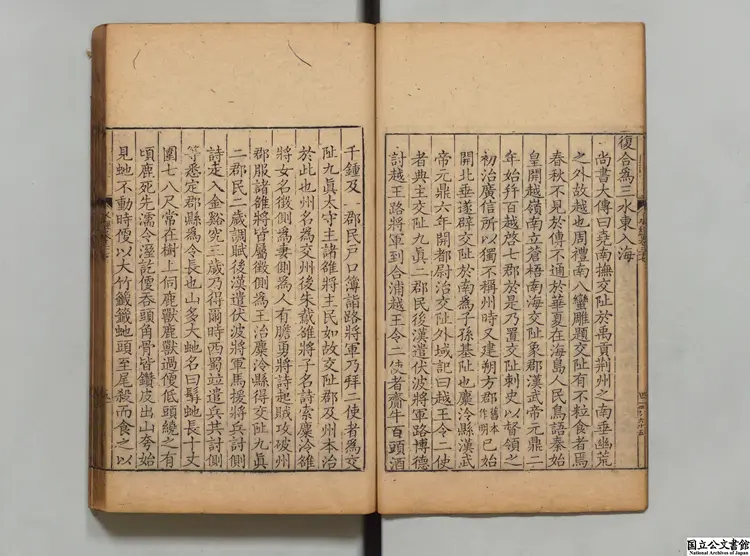 復合爲三水東入海
尚書大傳曰堯南撫交阯於禹貢荆州之南垂幽荒
之外故越也周禮南八蠻雕題交阯有不粒食者焉
春秋不見於傳不通於華夏在海島人民鳥語秦始
皇開越嶺南立蒼梧南海交阯象郡漢武帝元鼎二
年始幷百越啓七郡於是乃置交阯刺史以督領之
初治廣信所以獨不稱州時又建朔方郡舊本作明已始
開北垂遂辟交阯於南爲子孫基阯也麊泠縣漢武
帝元鼎六年開都尉治交阯外域記曰越王令二使
者典主交阯九眞二郡民後漢遣伏波將軍路博德
討越王路將軍到合浦越王令二使者齎牛百頭酒
千鍾及二郡民戶口簿詣路將軍乃拜二使者爲交
阯九眞太守主諸雒將主民如故交阯郡及州本治
於此也州名爲交州後朱䳒雒將子名詩索麊泠雒
將女名徵側爲妻側爲人有膽勇將詩起賊攻破州
郡服諸雒將皆屬徵側爲王治麊泠縣得交阯九眞
二郡民二歲調賦後漢遣伏波將軍馬援將兵討側
詩走入金谿究三歲乃得爾時西蜀竝遣兵共討側
等悉定郡縣爲令長也山多大虵名曰髯虵長十丈
圍七八尺常在樹上伺鹿獸鹿獸過便低頭繞之有
頃鹿死先濡令溼訖便吞頭角骨皆鑽皮出山夸始
見虵不動時便以大竹籤籤虵頭至尾殺而食之以
国立公文書館
National Archives of Japan